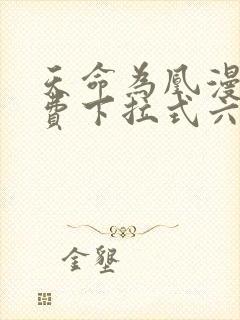 天命為凰漫
費下拉式六
金墾